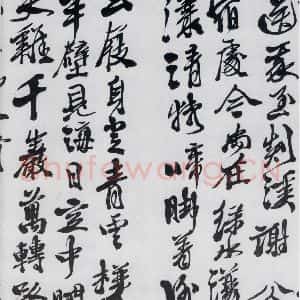 送我至剡溪謝公
宿處今尚在綠水蕩
漾清猿啼脚著謝
公屐身登青雲梯
半壁見海日空中聞
天雞千巖萬轉路
Shufawang.CN